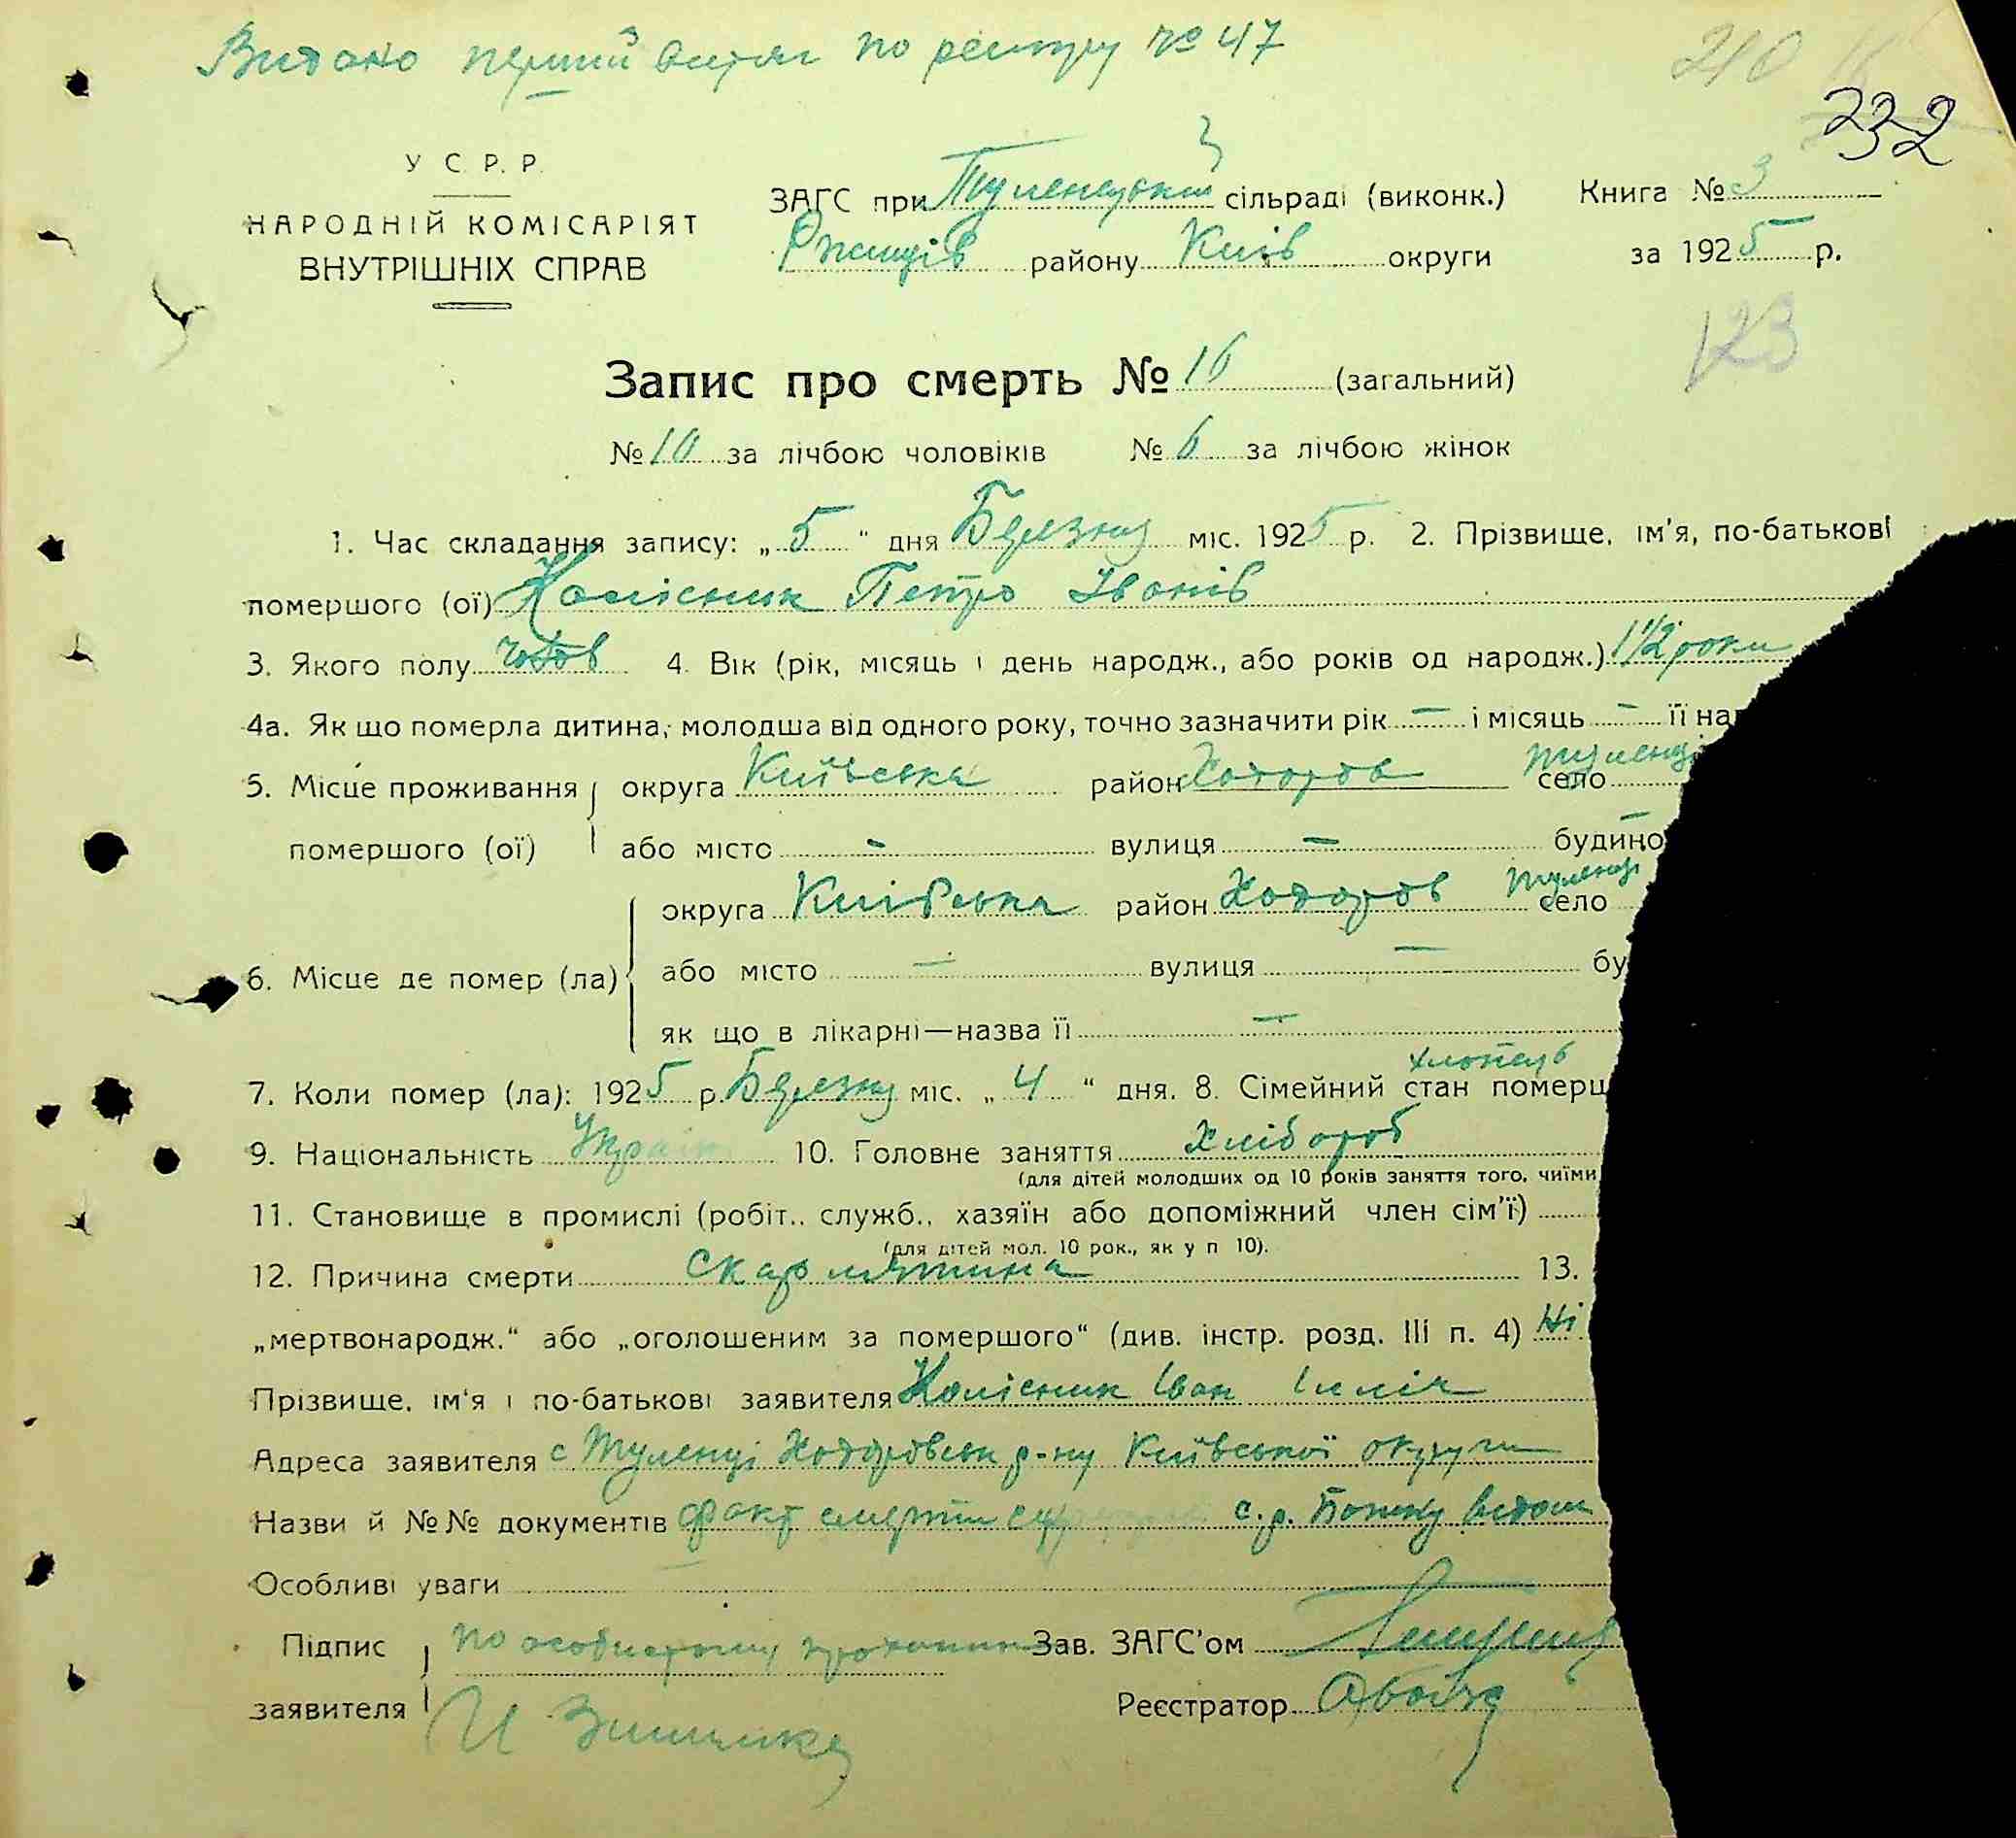 Видано перший витяг по реєстру № 47
210
232
У С. Р. Р.
НАРОДНІЙ КОМІСАРІЯТ
ВНУТРІШНІХ СПРАВ
ЗАГС при Туленецькій сільраді (виконк.)
Ржищів району Київ округи
Книга № 3
за 1925 р.
123
Запис про смерть № 16 (загальний)
№ 10 за лічбою чоловіків № 6 за лічбою жінок
1. Час складання запису: „ 5 " дня Березня міс. 1925 р. 2. Прізвище, ім'я, по-батькові
помершого (ої) Колісник Петро Іванів
3. Якого полу чолов 4. Вік (рік, місяць і день народж., або років од народж.) 1 1/2 роки
4а. Як що померла дитина, молодша від одного року, точно зазначити рік — і місяць — її на
5. Місце проживання округа Київська район Ходоров село Туленці
помершого (ої) або місто - вулиця — будино
округа Київська район Ходоров село Туленці
6. Місце де помер (ла) або місто — вулиця — бу
як що в лікарні—назва її —
7. Коли помер (ла): 1925 р. Березня міс. „ 4 " дня. 8. Сімейний стан померш хлопець
9. Національність Україн 10. Головне заняття Хлібороб
(для дітей молодших од 10 років заняття того, чиїми
11. Становище в промислі (робіт., служб., хазяїн або допоміжний член сім'ї)
(для дітей мол. 10 рок., як у п 10).
12. Причина смерти Скарлятина 13.
„мертвонародж." або „оголошеним за помершого" (див. інстр. розд. III п. 4) Ні
Прізвище, ім'я і по-батькові заявителя Колісник Іван
Адреса заявителя с Туленці Ходоровськ р-ну Київської округи
Назви й №№ документів факт смерти с.р.
Особливі уваги
Підпис по особистому проханню Зав. ЗАГС'ом
заявителя И Реєстратор